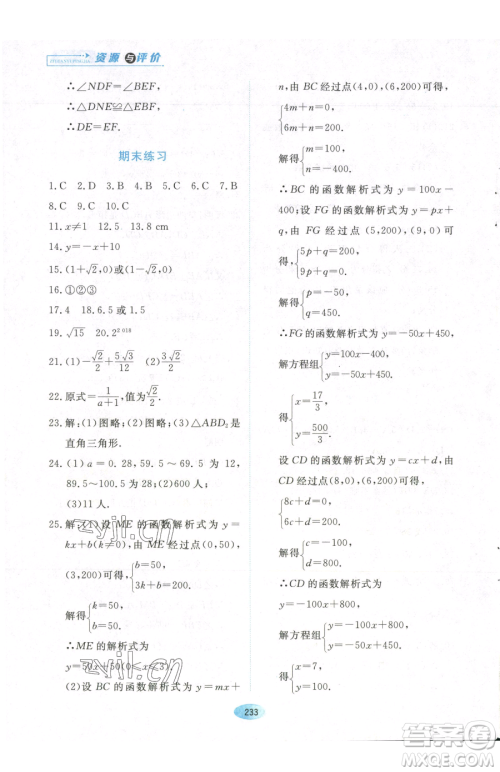 资源与评价
∴∠NDF=∠BEF,
∴△DNE≌△EBF,
∴DE=EF.
期末练习
1. C 2. D 3. C 4. C 5. C 6. C 7. B
8. C 9. C 10. C
11. x≠1 12. 5 13. 8 cm
14. y=-x+10
15. (1+√2,0)或(1-√2,0)
16. ①②③
17. 4 18. 6.5 或 1.5
19. √15 20. 2^2 018
21. (1)-√2/2+5√3/12 (2)3√2/2
22. 原式=1/(a+1),值为√2/2.
23. 解:(1)图略;(2)图略;(3)△ABD₂是
直角三角形.
24. (1)a=0.28,59.5~69.5 为 12,
89.5~100.5 为 16;(2)200 人;
(3)11 人.
25. 解:(1)设 ME 的函数解析式为 y=
kx+b(k≠0),由 ME 经过点(0,50),
(3,200)可得,{b=50, 3k+b=200.
解得{k=50, b=50.
∴ME 的解析式为
y=50x+50(0≤x≤3).
(2)设 BC 的函数解析式为 y=mx+
n,由 BC 经过点(4,0),(6,200)可得,
{4m+n=0, 6m+n=200.
解得{m=100, n=-400.
∴ BC 的函数解析式为 y=100x-
400;设 FG 的函数解析式为 y=px+
q,由 FG 经过点(5,200),(9,0)可得,
{5p+q=200, 9p+q=0.
解得{p=-50, q=450.
∴FG 的函数解析式为 y=-50x+450.
解方程组{y=100x-400, y=-50x+450.
得{x=17/3, y=500/3.
设 CD 的函数解析式为 y=cx+d,由
CD 经过点(8,0),(6,200)可得,
{8c+d=0, 6c+d=200.
解得{c=-100, d=800.
∴CD 的函数解析式为
y=-100x+800.
解方程组{y=-100x+800, y=-50x+450.
得{x=7, y=100.
233
zyjl.cn
zyjl.cn